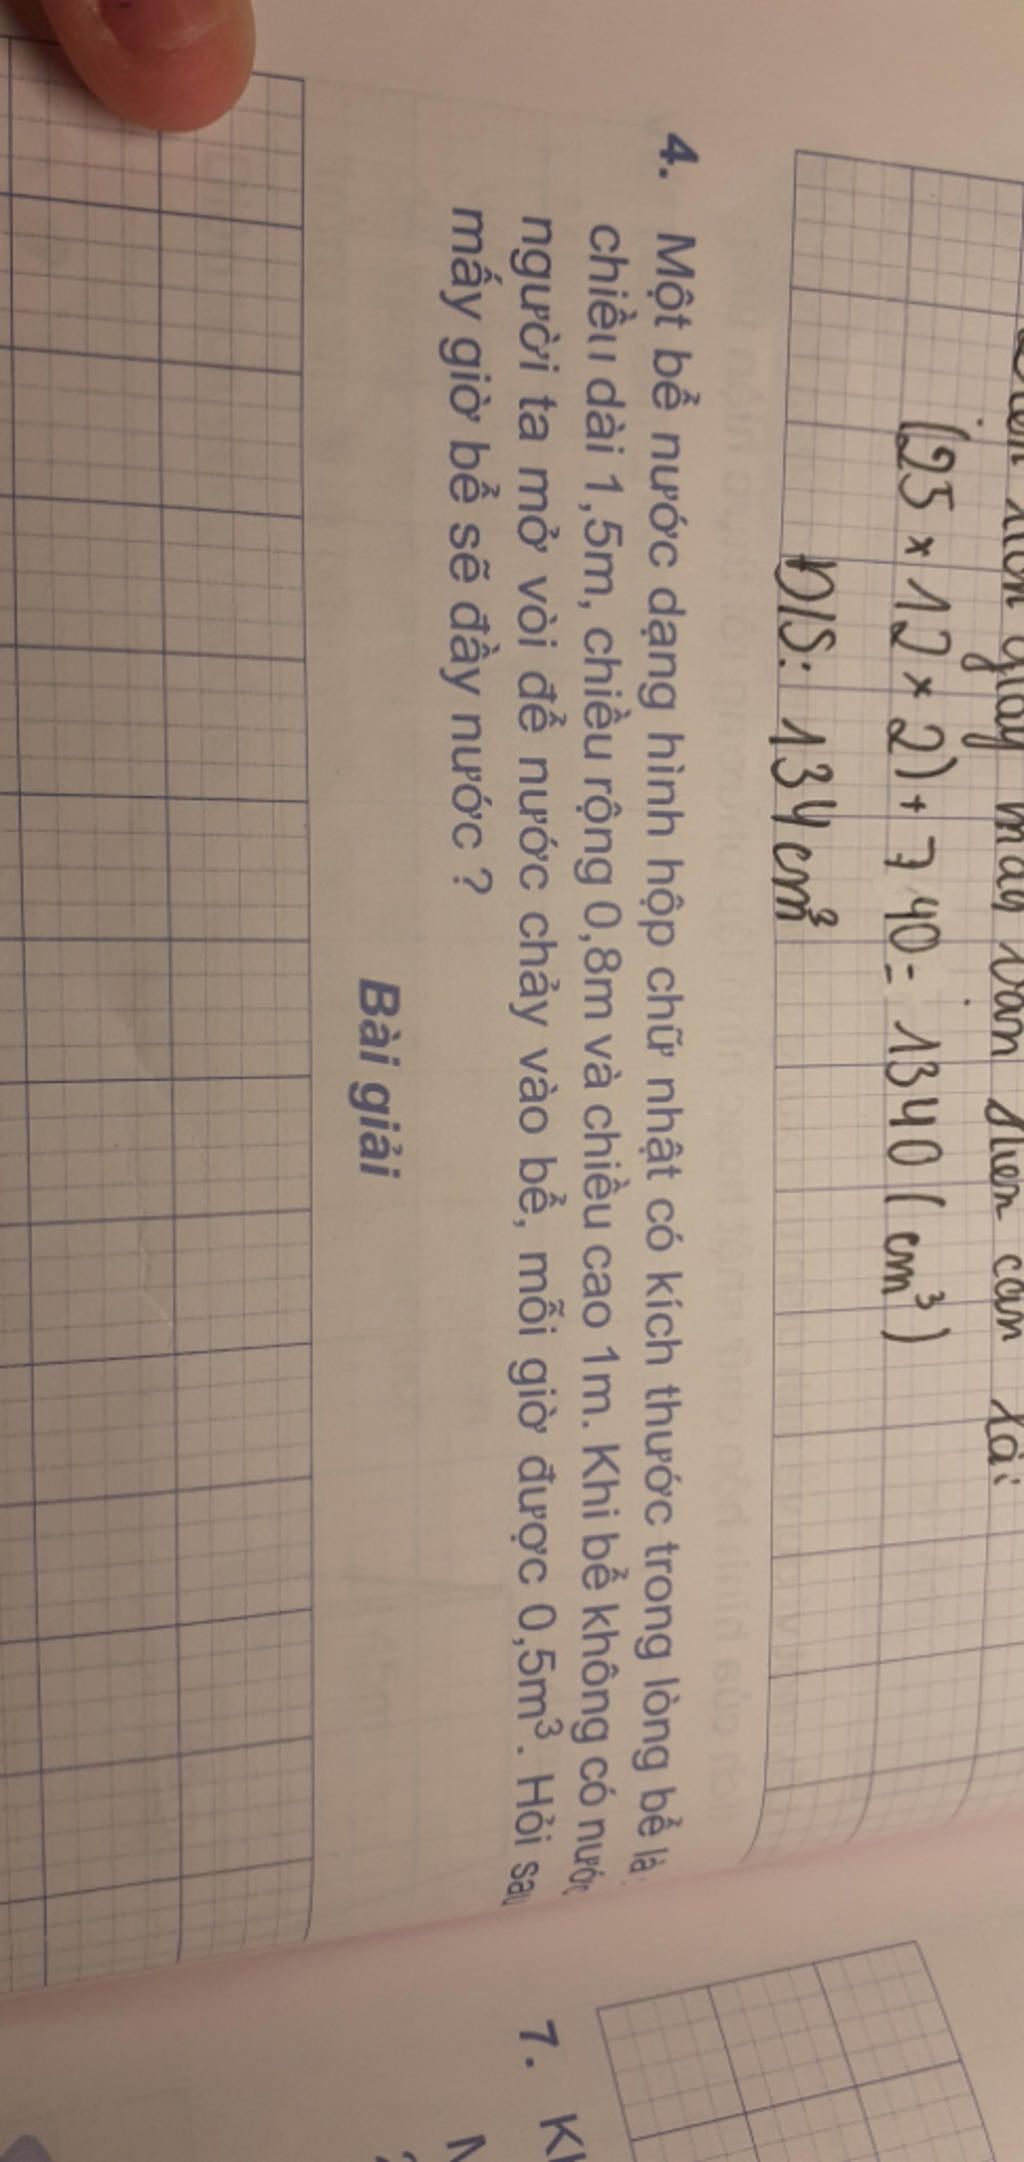 giấy
(25 x 12 x 2) + 740 = 1340 (cm³)
Đ/S: 134 cm³
4. Một bể nước dạng hình hộp chữ nhật có kích thước trong lòng bể là:
chiều dài 1,5m, chiều rộng 0,8m và chiều cao 1m. Khi bể không có nước
người ta mở vòi để nước chảy vào bể, mỗi giờ được 0,5m³. Hỏi sau
mấy giờ bể sẽ đầy nước ?
Bài giải
7.